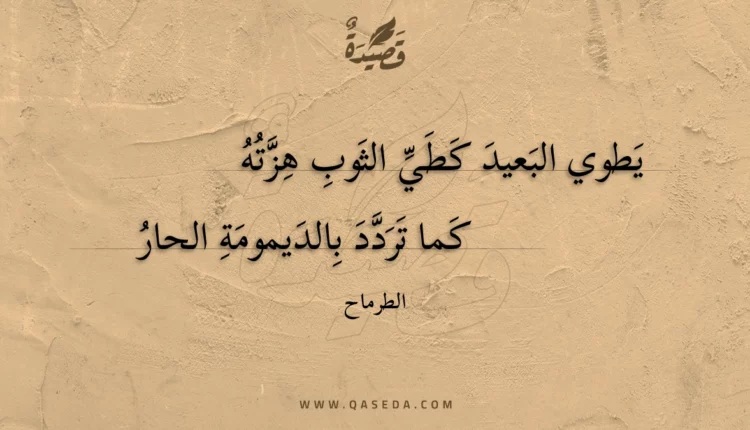 قَصِيدَةٌ
يَطوي البَعيدَ كَطَيِّ الثَوبِ هِزَّتُهُ
كَما تَرَدَّدَ بِالدَيمومَةِ الحارُ
الطرماح
WWW.QASEDA.COM